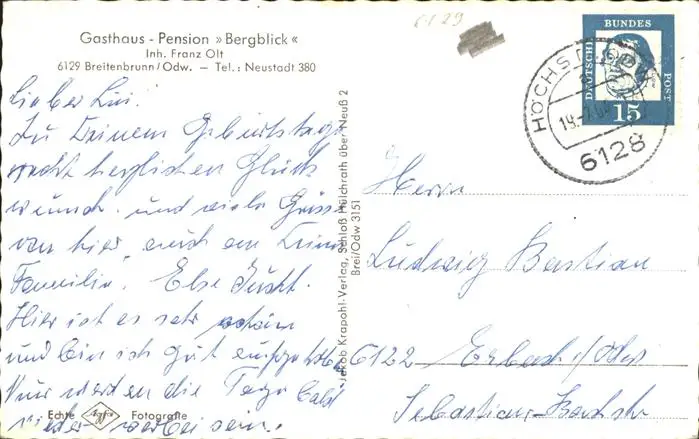 Gasthaus - Pension »Bergblick«
Inh. Franz Olt
6129 Breitenbrunn/Odw. – Tel.: Neustadt 380
6129
DEUTSCHE BUNDESPOST
15
HÖCHST
19.-7.
6128
Lieber
Zu Deinem Geburtstage
recht herzlichen Glück
wunsch und viele Grüsse
von hier, auch an Deine
Familie. Else
Hier ist es sehr schön
und bin ich gut aufgehoben
Nur werden die Tage bald
wieder vorbei sein.
Echte Agfa Fotografie
Jakob Krapohl-Verlag, Schloß Hülchrath über Neuß 2
Brei/Odw 3151
Herrn
Ludwig Bastian
6122 Erbach i/Odw
Sebastian-Bachstr